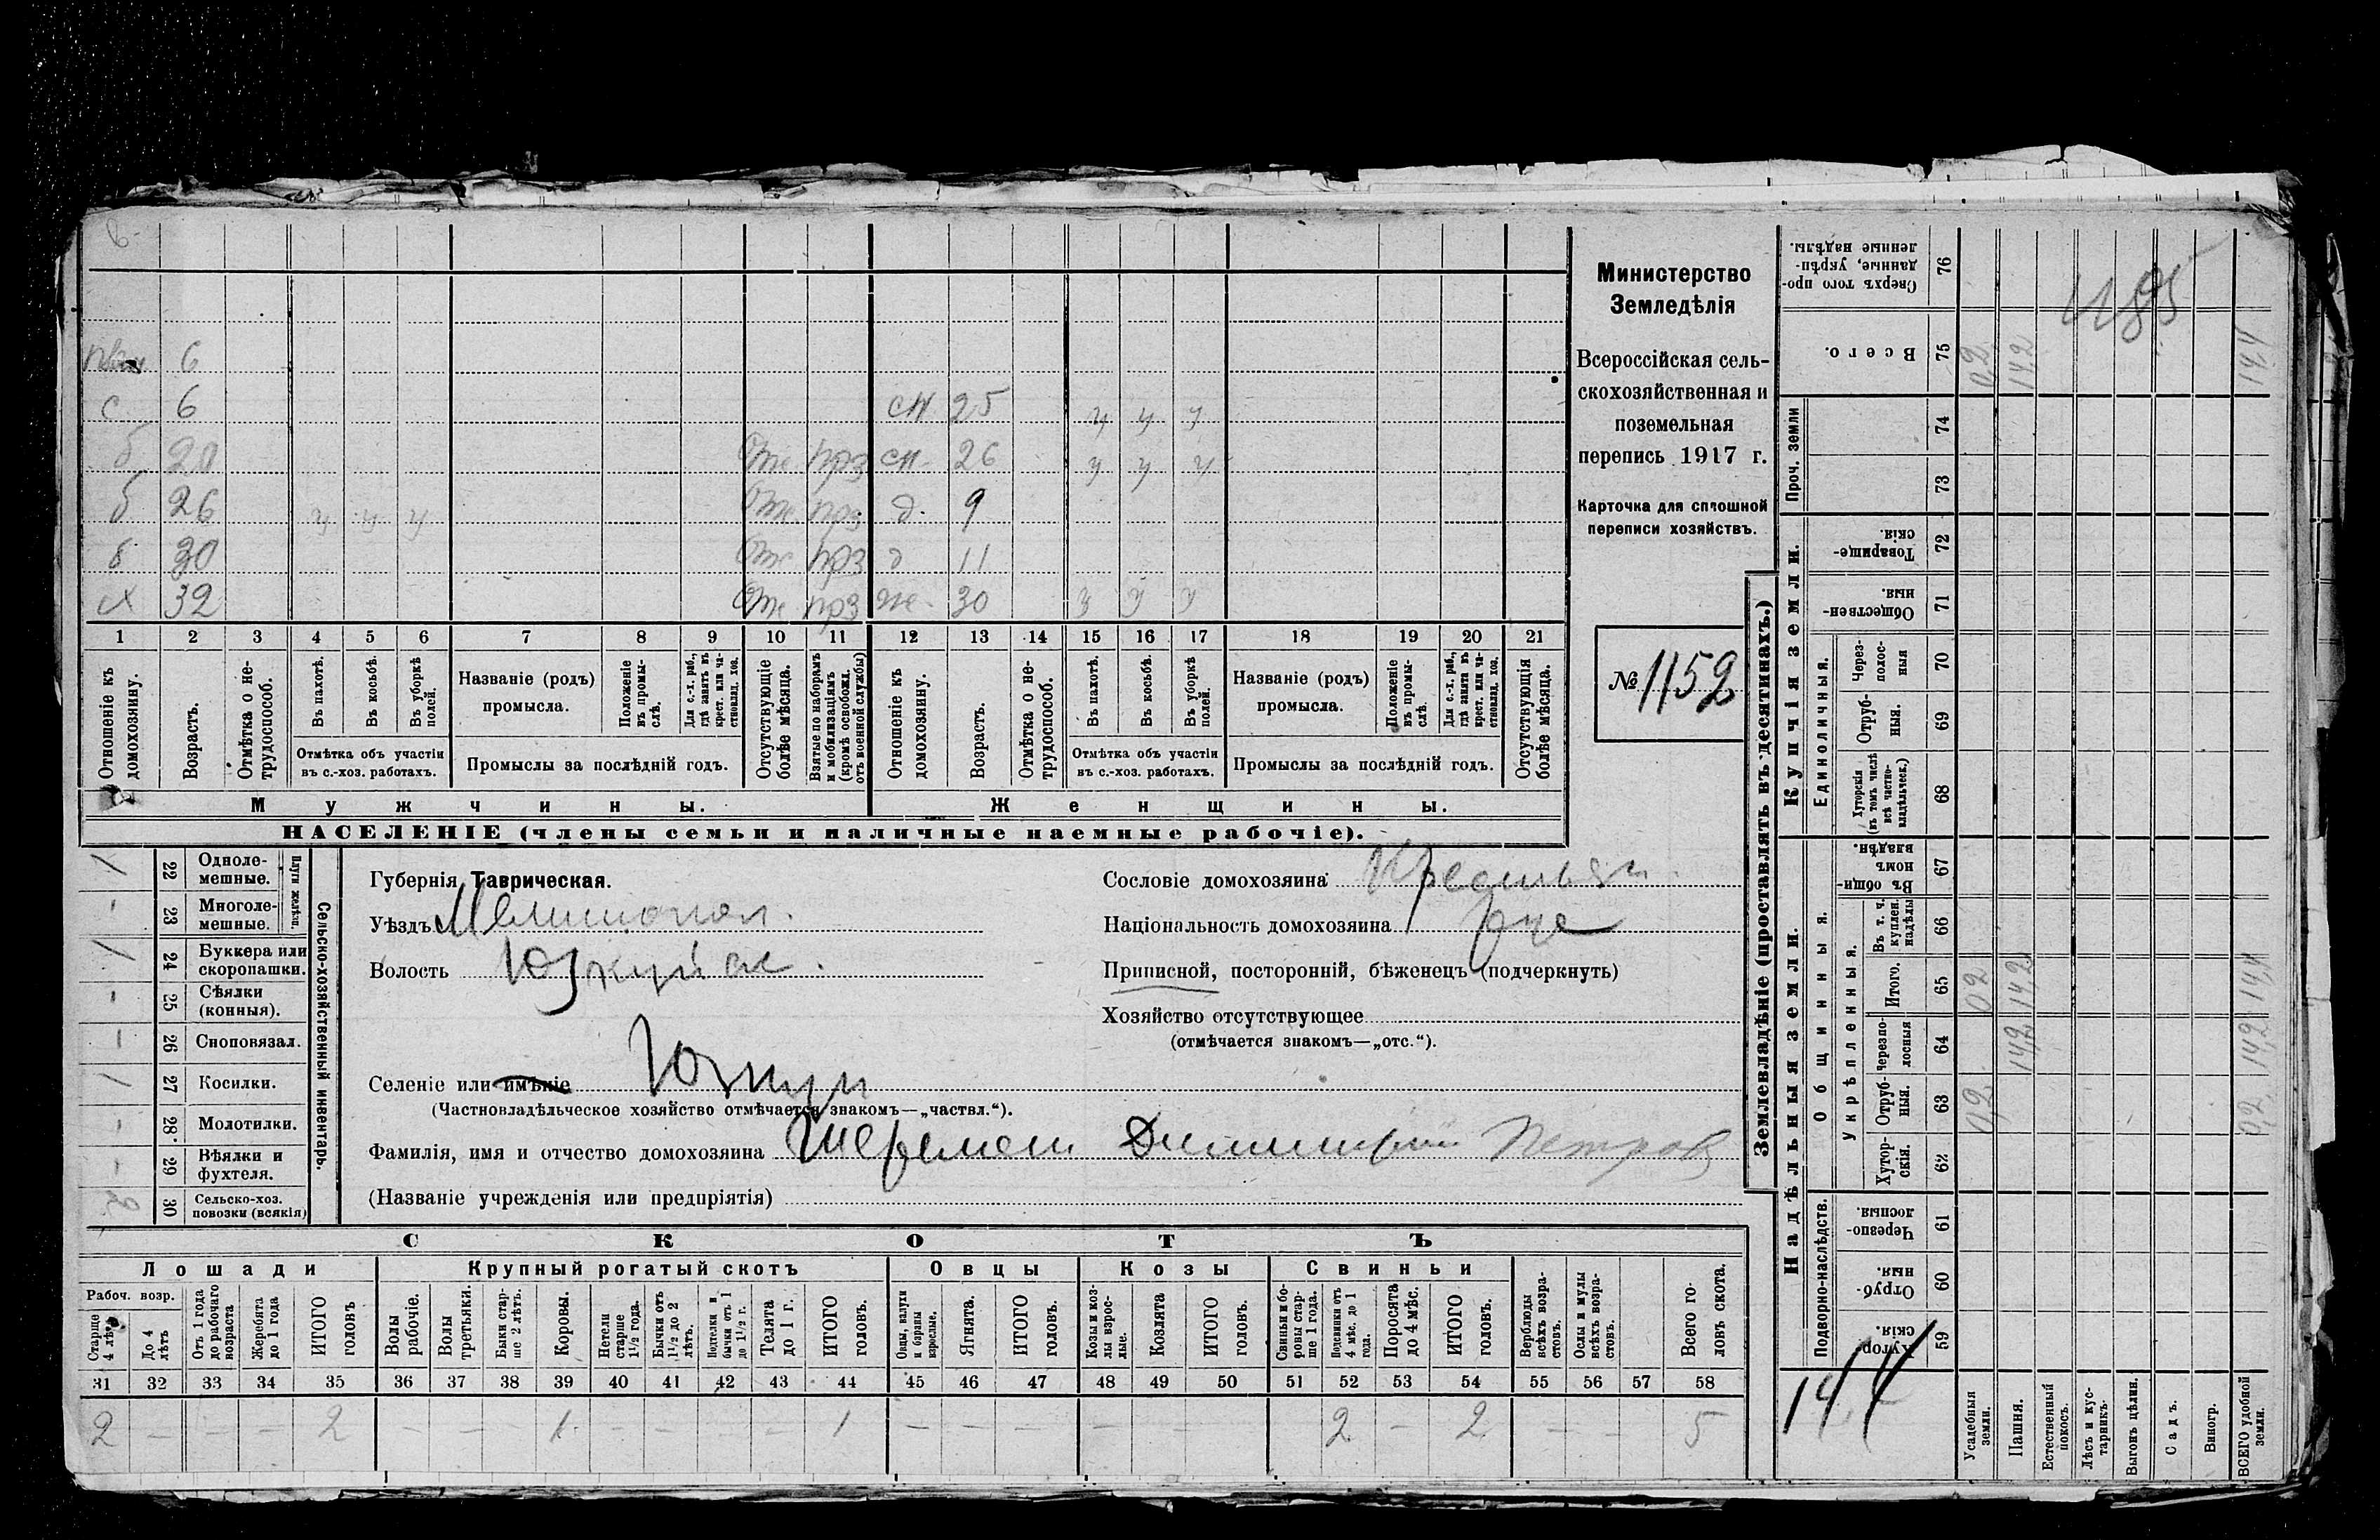 6
с 6 сн 25 у у у
б 20 Отс прз сн 26 у у у
б 26 у у у Отс прз д. 9
б 30 Отс прз д 11
х 32 Отс прз же. 30 у у у
1 2 3 4 5 6 7 8 9 10 11 12 13 14 15 16 17 18 19 20 21
Отношеніе къ домохозяину.
Возрастъ.
Отмѣтка о нетрудоспособ.
Въ пахотѣ.
Въ косьбѣ.
Въ уборкѣ полей.
Отмѣтка объ участіи въ с.-хоз. работахъ.
Названіе (родъ) промысла.
Положеніе въ промыслѣ.
Для с.-х. раб., гдѣ занятъ въ крест. или частновлад. хоз.
Промыслы за послѣдній годъ.
Отсутствующіе болѣе мѣсяца.
Взятые по наборамъ и мобилизаціямъ (кромѣ освобожд. отъ военной службы)
Отношеніе къ домохозяину.
Возрастъ.
Отмѣтка о нетрудоспособ.
Въ пахотѣ.
Въ косьбѣ.
Въ уборкѣ полей.
Отмѣтка объ участіи въ с.-хоз. работахъ.
Названіе (родъ) промысла.
Положеніе въ промыслѣ.
Для с.-х. раб., гдѣ занята въ крест. или частновлад. хоз.
Промыслы за послѣдній годъ.
Отсутствующія болѣе мѣсяца.
Мужчины.
Женщины.
НАСЕЛЕНІЕ (члены семьи и наличные наемные рабочіе).
Министерство
Земледѣлія
Всероссійская сель-
скохозяйственная и
поземельная
перепись 1917 г.
Карточка для сплошной
переписи хозяйствъ.
№ 1152
Сельско-хозяйственный инвентарь.
Плуги желѣзн.
1 22 Одноле-
мешные.
- 23 Многоле-
мешные.
1 24 Буккера или
скоропашки.
- 25 Сѣялки
(конныя).
- 26 Сноповязал.
1 27 Косилки.
- 28 Молотилки.
- 29 Вѣялки и
фухтеля.
2 30 Сельско-хоз.
повозки (всякія)
Губернія Таврическая.
Уѣздъ Мелитопол.
Волость Юзкуйск.
Селеніе или имѣніе Юзкуи
(Частновладѣльческое хозяйство отмѣчается знакомъ—„частвл.“).
Фамилія, имя и отчество домохозяина Шеремет Димитрий Петров
(Названіе учрежденія или предпріятія)
Сословіе домохозяина Крестьян.
Національность домохозяина
Приписной, посторонній, бѣженецъ (подчеркнуть)
Хозяйство отсутствующее
(отмѣчается знакомъ—„отс.“).
СКОТЪ
Лошади
Крупный рогатый скотъ
Овцы
Козы
Свиньи
Рабоч. возр.
Старше 4 лѣтъ
До 4 лѣтъ
Отъ 1 года до рабочаго возраста
Жеребята до 1 года
ИТОГО головъ
Волы рабочіе.
Волы третьяки.
Быки старше 2 лѣтъ.
Коровы.
Нетели старше 1½ года.
Бычки отъ 1½ до 2 лѣтъ.
Подтелки и бычки отъ 1 до 1½ г.
Телята до 1 г.
ИТОГО головъ.
Овцы, валухи и бараны взрослые.
Ягнята.
ИТОГО головъ.
Козы и козлы взрослые.
Козлята
ИТОГО головъ.
Свиньи и боровы старше 1 года.
Подсвинки отъ 4 мѣс. до 1 года.
Поросята до 4 мѣс.
ИТОГО головъ.
Верблюды всѣхъ возрастовъ.
Ослы и мулы всѣхъ возрастовъ.
Всего головъ скота.
31 32 33 34 35 36 37 38 39 40 41 42 43 44 45 46 47 48 49 50 51 52 53 54 55 56 57 58
2 - - - 2 - - - 1 - - - - 1 - - - - - 2 - 2 - - 5
Землевладѣніе (проставлять въ десятинахъ.)
Купчія земли.
Надѣльныя земли.
Сверхъ того проданные, укрѣпленные надѣлы. 76
Всего. 75 0,2 14,2 14,4
Проч. земли
74
73
Товарищескія. 72
Общественныя. 71
Единоличныя.
Черезполосныя 70
Отрубныя. 69
Хуторскія (въ томъ числѣ всѣ частновладѣльческ.) 68
Въ общинномъ владѣн. 67
Общинныя.
Укрѣпленныя.
Въ т. ч. куплен. надѣлы 66
Итого. 65 0,2 14,2 14,4
Черезполосныя 64 14,2 14,2
Отрубныя. 63 0,2 0,2
Хуторскія. 62
Подворно-наслѣдств.
Черезполосныя. 61
Отрубныя. 60
Хуторскія. 59
14,4
Усадебныя земли.
Пашня.
Естественный покосъ.
Лѣсъ и кустарникъ.
Выгонъ цѣлин.
Садъ.
Виногр.
ВСЕГО удобной земли.